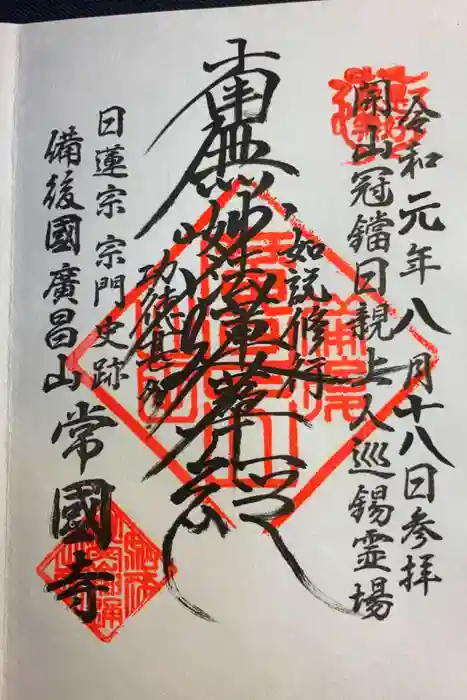 令和元年八月十八日参拝
開山冠鐺日親上人巡錫霊場
如説修行
南無妙法蓮華経
功徳甚多
日蓮宗宗門史跡
備後國廣昌山
常國寺